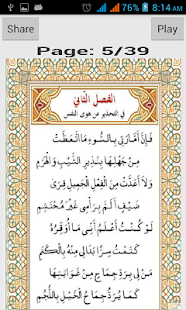 8:14 AM
Share
Play
Page: 5/39
الفصل الثاني
في التحذير من هوى النفس
فَإِنَّ أَمَّارَتِي بِالسُّوءِ مَا اتَّعَظَتْ
مِنْ جَهْلِهَا بِنَذِيرِ الشَّيْبِ وَالْهَرَمِ
وَلَا أَعَدَّتْ مِنَ الْفِعْلِ الْجَمِيلِ قِرَى
ضَيْفٍ أَلَمَّ بِرَأْسِي غَيْرَ مُحْتَشِمِ
لَوْ كُنْتُ أَعْلَمُ أَنِّي مَا أُوَقِّرُهُ
كَتَمْتُ سِرًّا بَدَا لِي مِنْهُ بِالْكَتَمِ
مَنْ لِي بِرَدِّ جِمَاحٍ مِنْ غَوَايَتِهَا
كَمَا يُرَدُّ جِمَاحُ الْخَيْلِ بِاللُّجُمِ